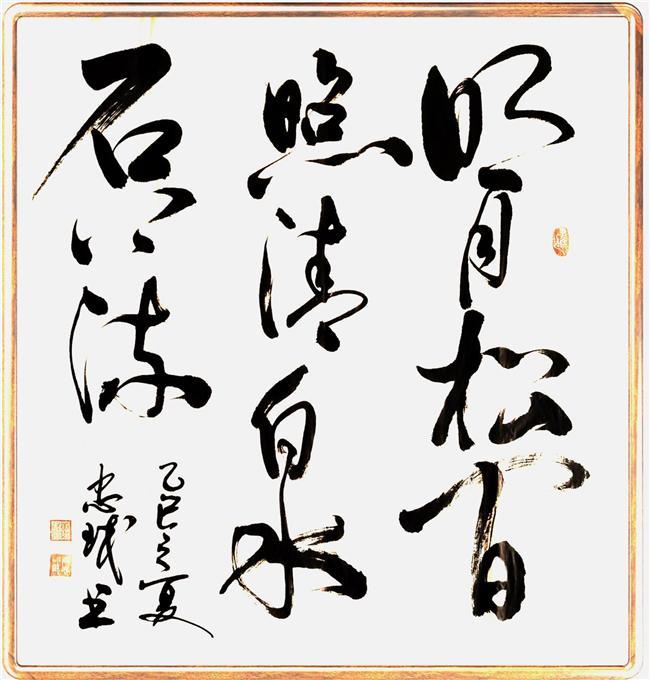 明月松间
照清泉
石上流
乙巳之夏
忠书